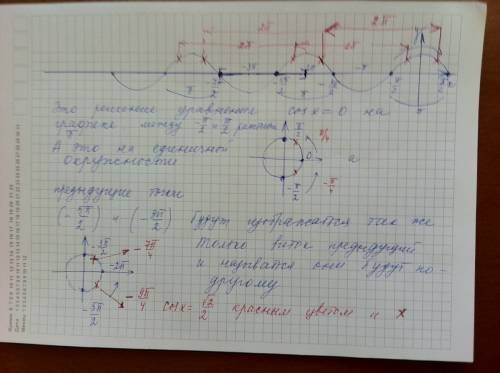 2π 2π
2π 2π
-3π -2π -π
π π π π
Это решение уравнения cos x = 0 на
графике между -π/2 и π/2 расстоян.
(π).
А это на единичной
окружности
π/2 π/4
0
-π/2 -π/4
предыдущие точки
(-5π/2) и (-3π/2) будут изображатся так же
только виток предыдущий
и называтся они будут по-
другому
-3π/2 -7π/4
-2π
-5π/2 -9π/4
cos x = √2/2 красным цветом и x